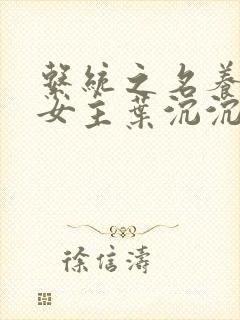 繫統之名養
女主葉沉沉
徐信濤